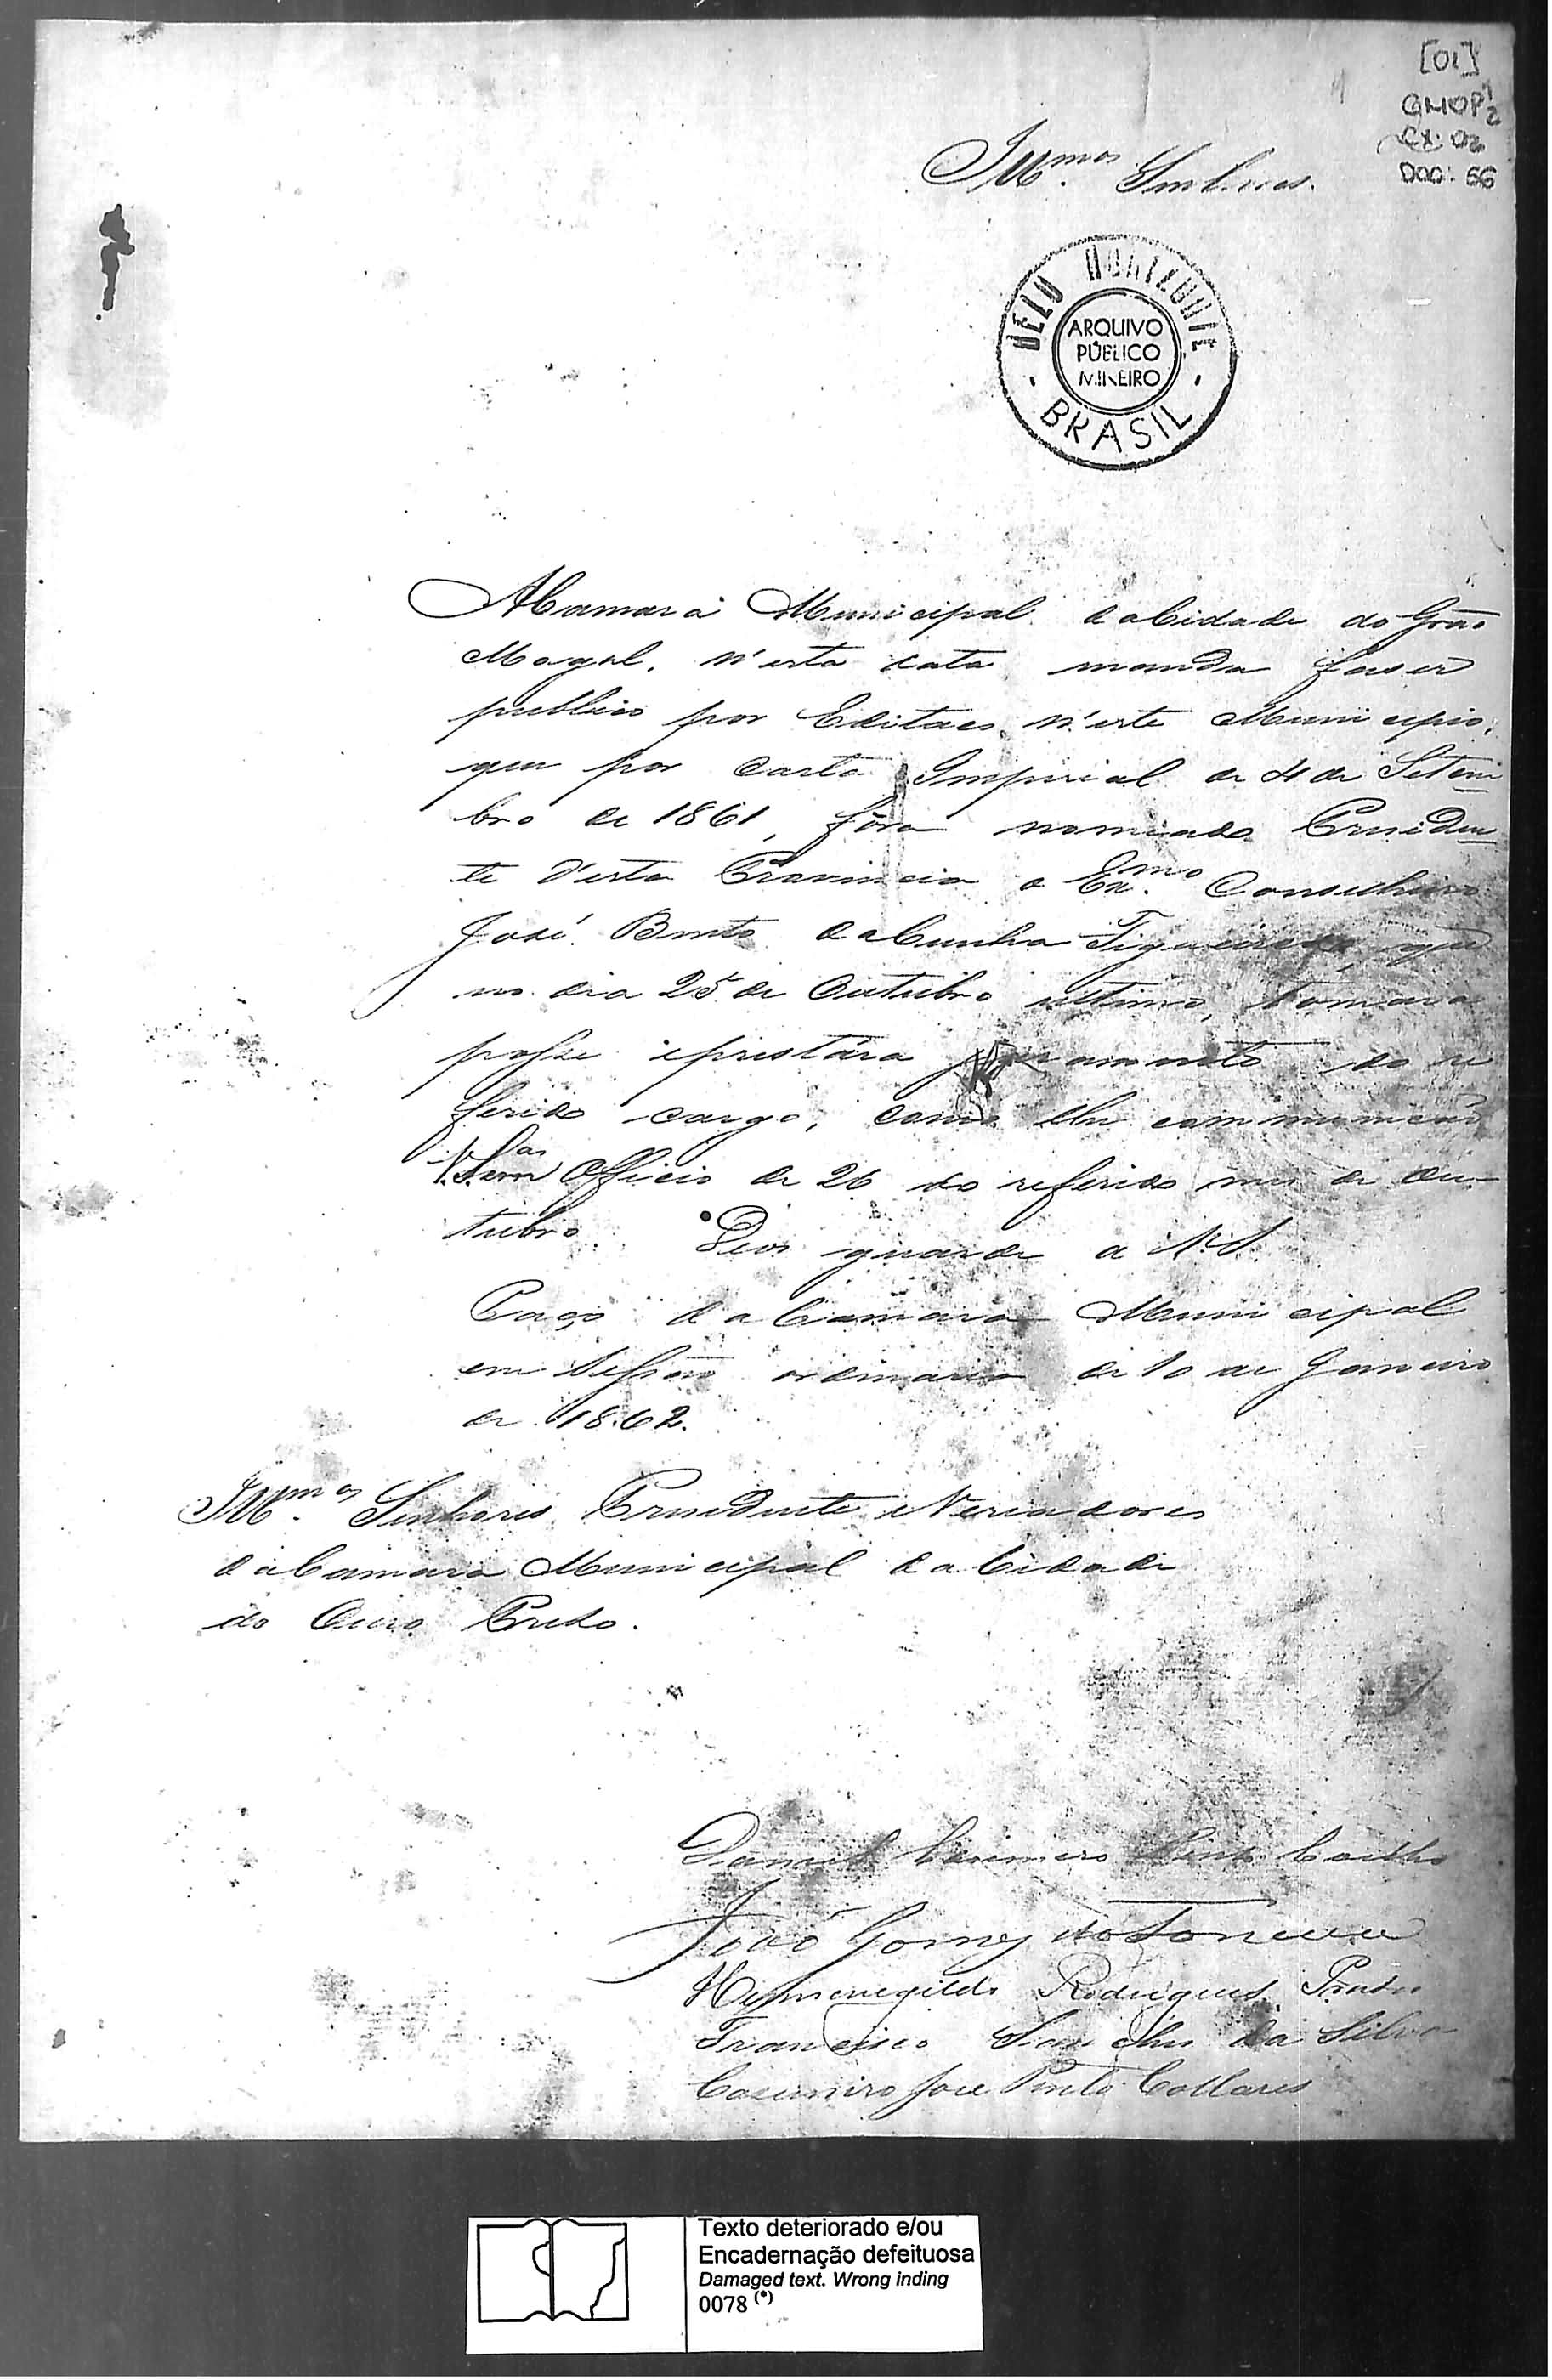 [01]
CMOP 1/2
CX. 02
DOC. 66
Illmos. Senhores.
BELO HORIZONTE
ARQUIVO
PÚBLICO
MINEIRO
- BRASIL -
A Camara Municipal da Cidade do Grão
Mogol, n'esta data manda faser
publico por Editaes, n'este Municipio,
que por Carta Imperial de 4 de Setem
bro de 1861, fôra nomeado Presiden
te d'esta Provincia o Exmo. Conselheiro
José Bento da Cunha Figueiredo, que
no dia 25 de Outubro ultimo, tomara
posse e prestára juramento do re
ferido cargo, como lhe communicarão
V. Sas em Officio de 26 do referido mes de Ou-
tubro. Deos guarde a V.S.
Paço da Camara Municipal
em Sessão ordinaria de 10 de Janeiro
de 1862.
Illmos. Senhores Presidente e Vereadores
da Camara Municipal da Cidade
do Ouro Preto.
Daniel Casimiro Pinto Coelho
João Gomes da Fonseca
Hermenegildo Rodrigues Prates
Francisco Sanches da Silva
Casimiro José Pinto Collares
Texto deteriorado e/ou
Encadernação defeituosa
Damaged text. Wrong inding
0078 (*)